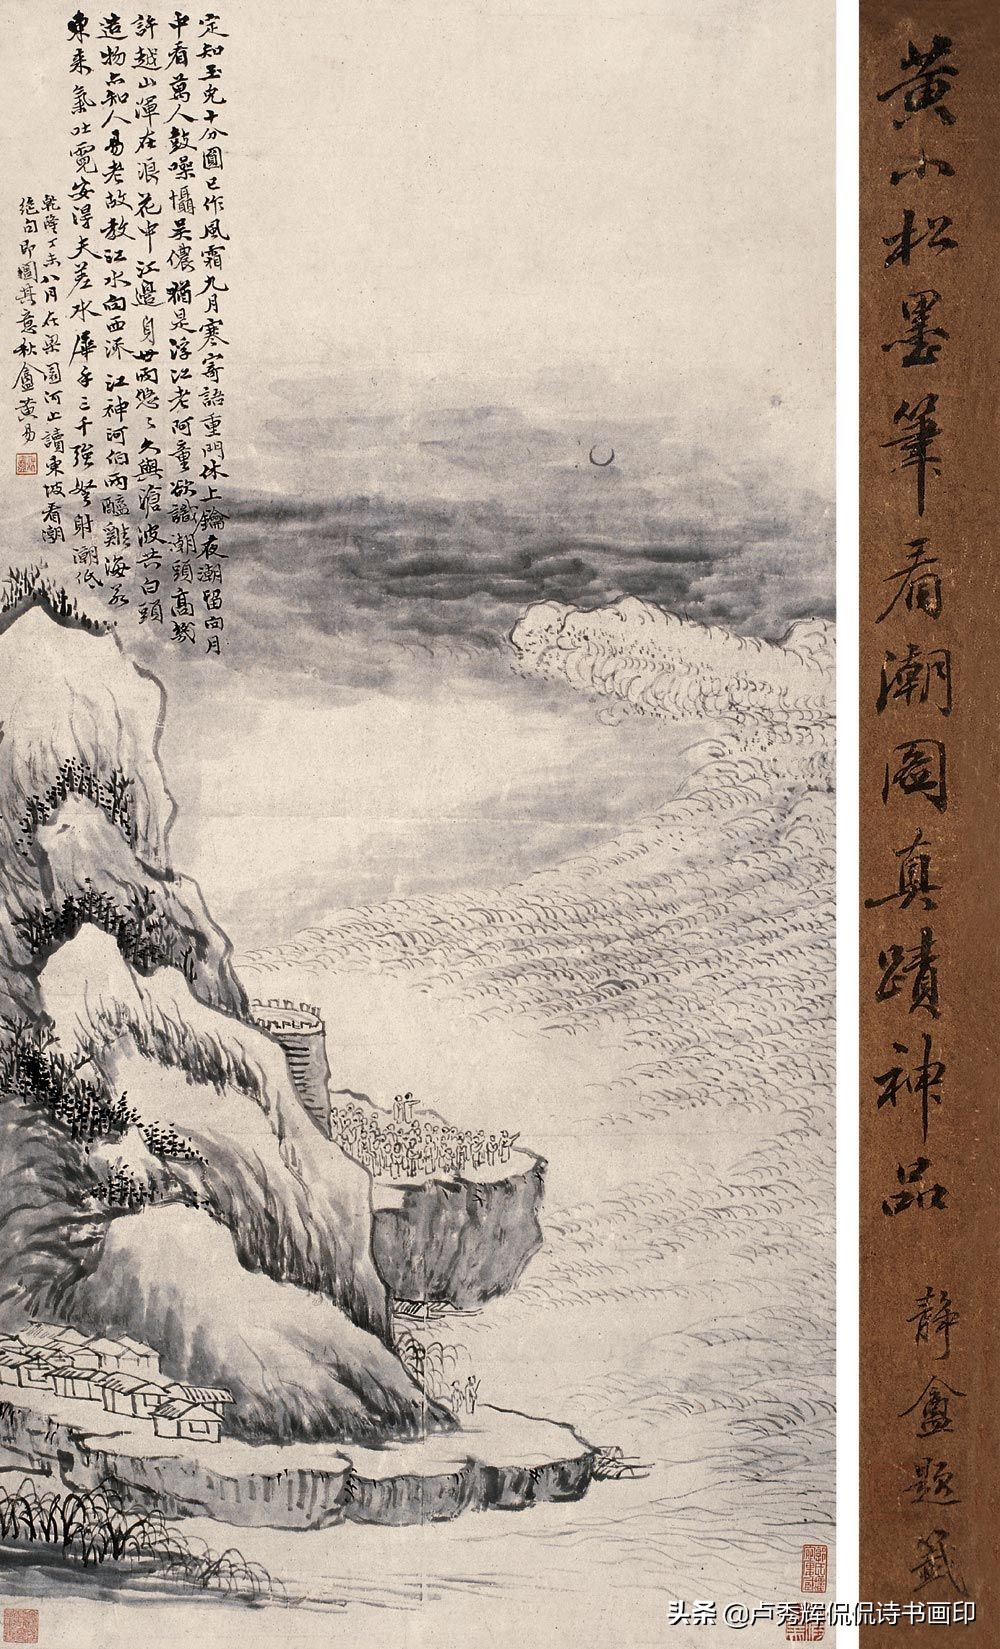 定知玉兔十分圓已作風霜九月寒寄語重門休上鑰夜潮留向月
中看萬人鼓噪懾吳儂猶是浮江老阿童欲識潮頭高幾
許越山渾在浪花中江邊身世兩悠〻久與滄波共白頭
造物亦知人易老故教江水向西流江神河伯兩醯雞海若
東來氣吐霓安得夫差水犀手三千強弩射潮低
乾隆丁未八月在梁園河上讀東坡看潮
絕句即圖其意秋盦黃易
黃小松墨筆看潮圖真蹟神品 靜盦題籤
头条 @卢秀辉侃侃诗书画印